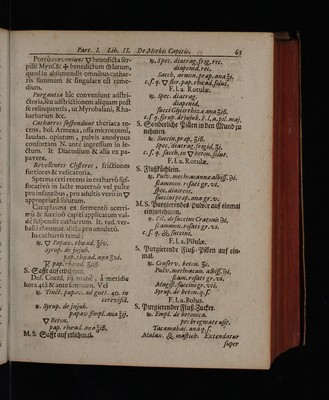 Part. I. Lib. II. De Morbis Capitis. 63
Porrò conveniunt ▽ benedicta ser-
pilli Mynf. & ✠ benedictum Slatum,
quod in absumendis omnibus cathar-
ris summum & singulare est reme-
dium.
Purgantia hîc conveniunt adstri-
ctoria, seu adstrictionem aliquam post
se relinquentia, ut Myrobalani, Rha-
barbarum &c.
Catharros suspendunt theriaca re-
cens, bol. Armena, ossa microcosmi,
laudan. opiatum, pulvis anodynus
confortans N. ante ingressum in le-
ctum. It Diacodium & alia ex pa-
pavere.
Revellentes Clysteres, frictiones
fortiores & vesicatoria.
Sperma ceti recens in catharro suf-
focativo in lacte materno vel pulte
pro infantibus, pro adultis vero in ▽
appropriatâ solutum.
Cataplasma ex fermento acerri-
mo & succino capiti applicatum val-
dè suspendit catharrum. It. rad. ver-
basci
In catharro tenui:
℞. ▽ Papav. rhœad. ℥iv.
Syrup. de jujub.
pap. rhœad. ana ℥vi.
S. Safft auff
Dos. Cochl. iij. manè, à meridie
hora 4ta & ante somnum. Vel
℞. Tinct. papav. ad gutt. 40. in
cerevisiâ.
℞. Syrup. de jujub.
papav. simpl. ana ℥ij.
▽ Beton.
pap. rhœad. ana ℥iß.
M. S. Safft auff etlichmal.
℞. Spec. diatrag. frig. rec.
diapenid. rec.
Sacch. armen. prap. ana ʒi.
c. s. q. ▽ flor. pap. rhœad. solut.
F. l. a. Rotulæ.
℞. Spec. diatrag.
diapenid.
succi Glycyrrhiza ana ʒiß.
c. s. q. syrup. de jujub. F. l. a. pil. maj.
S. Sonderliche Pillen in den Mund zu
nehmen.
℞. Succin. prap. ʒiß.
Spec. diatrag. frigid. ʒi.
c. s. q. sacch. in ▽ beton. solut.
F. l. a. Rotulæ.
S. Flußküchlein.
℞. Pulv. mechoacanna albiss. ℈i.
scammon. rosati gr. vi.
spec. diatreos,
succini prap. ana gr. v.
M. S. Purgierendes Pulver auff einmal
einzunehmen.
℞. Pil. de succino Cratonis ℈i.
scammon. rosat. gr. vi.
c. s. q. succini.
F. l. a. Pilulæ.
S. Purgierende Fluß-Pillen auff ein-
mal.
℞. Conserv. beton. ʒi.
Pulv. mechoacan. albiss. ℈i.
scam. rosati gr. vi.
Magist. succini gr. vii.
Syrup. de beton. q. s.
F. l. a. Bolus.
S. Purgierender Fluß-Zucker.
℞. Empl. de betonica.
pro bregmate usit.
Tacamahac. ana q. s.
Malax. & mastich. Extendatur
super